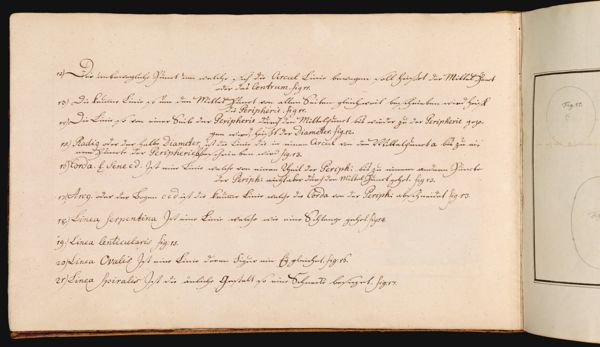 12) Der unbewegliche Punct um welche sich die Circul Linie bewegen soll heißet der Mittel Punct
oder das Centrum. fig. 11.
13) Die krumme Linie so um den Mittel Punct von allen Seiten gleichweit beschrieben wird heißt
die Peripherie. fig. 11.
14) Die Linie so von einer Seite der Peripherie durch den Mittelpunct bis wieder zu der Peripherie gezo-
gen wird, heißt der Diameter. fig. 12.
15) Radig oder der halbe Diameter, ist die Linie die in einem Circul von dem Mittelpunct a bis zu
Puncte der Peripherie wird. fig. 13.
16) Corda. Ist eine Linie welche von einem Theil der Periph: bis zu einem andern Puncte
der Periph: durch den Mittel Punct gehet. fig. 13.
17) Arcg. oder der Bogen ced ist die krumme Linie welche die Corda von der Periph: abschneidet fig. 13.
18) Linea Serpentina Ist eine Linie welche wie eine Schlange gehet. fig. 14.
19) Linea lenticularis fig. 15.
20) Linea Ovalis Ist eine Linie deren Figur ein Ey gleichet. fig. 16.
21) Linea Spiralis Ist die Gestalt so eine Schnecke fig. 17.
Fig. 12.
Fig.